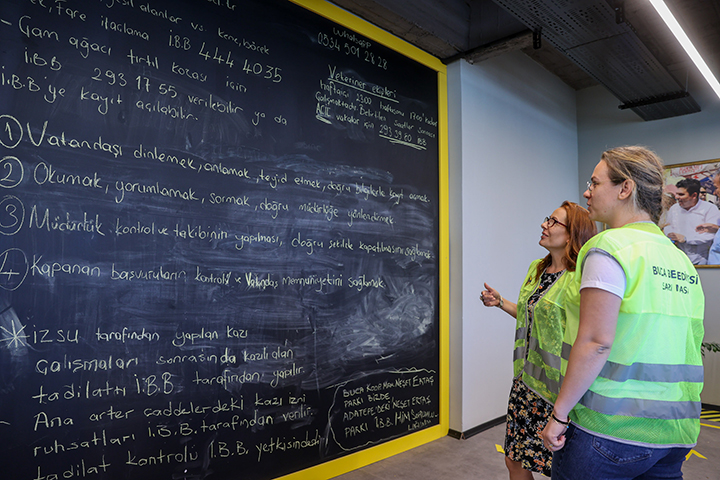 alanlar vs. kene, böcek
Fare ilaçlama İ.B.B 444 40 35
- Çam ağacı tırtıl kozası için
İ.B.B 293 17 55 verilebilir ya da
İ.B.B'ye kayıt açılabilir.
Whatsapp
0534 501 28 28
Veteriner ekipleri
haftaiçi 23.00 haftasonu 17.00
ACİL vakalar için 293 39 80 BB
1 Vatandaşı dinlemek, anlamak, teyid etmek, doğru bilgilerle kayıt açmak.
2 Okumak, yorumlamak, sormak, doğru müdürlüğe yönlendirmek
3 Müdürlük kontrol ve takibinin yapılması, doğru şekilde kapatılmasını sağlamak
4 Kapanan başvuruların kontrolü ve Vatandaş memnuniyetini sağlamak
* İZSU tarafından yapılan kazı
çalışmaları sonrasında kazılı alan
tadilatı İ.B.B tarafından yapılır.
Ana arter caddelerdeki kazı izni
ruhsatları İ.B.B. tarafından verilir.
tadilat kontrolü İ.B.B. yetkisindedir
BUCA KOOP MAH. NEŞET ERTAŞ
PARKI BİZDE
ADATEPE'DEKİ NEŞET ERTAŞ
PARKI İ.B.B.
BUCA BELEDİYESİ